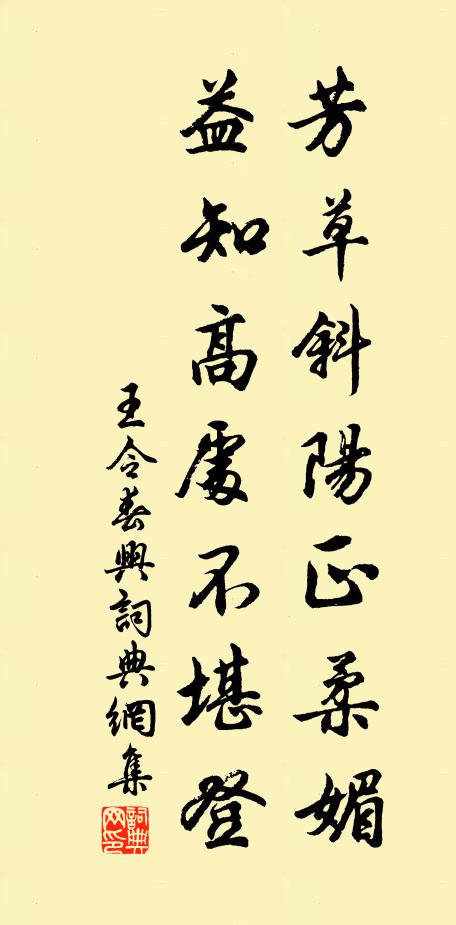 芳草斜陽正柔媚
益知高處不堪登
王令春興詞典網集
詞典
网印